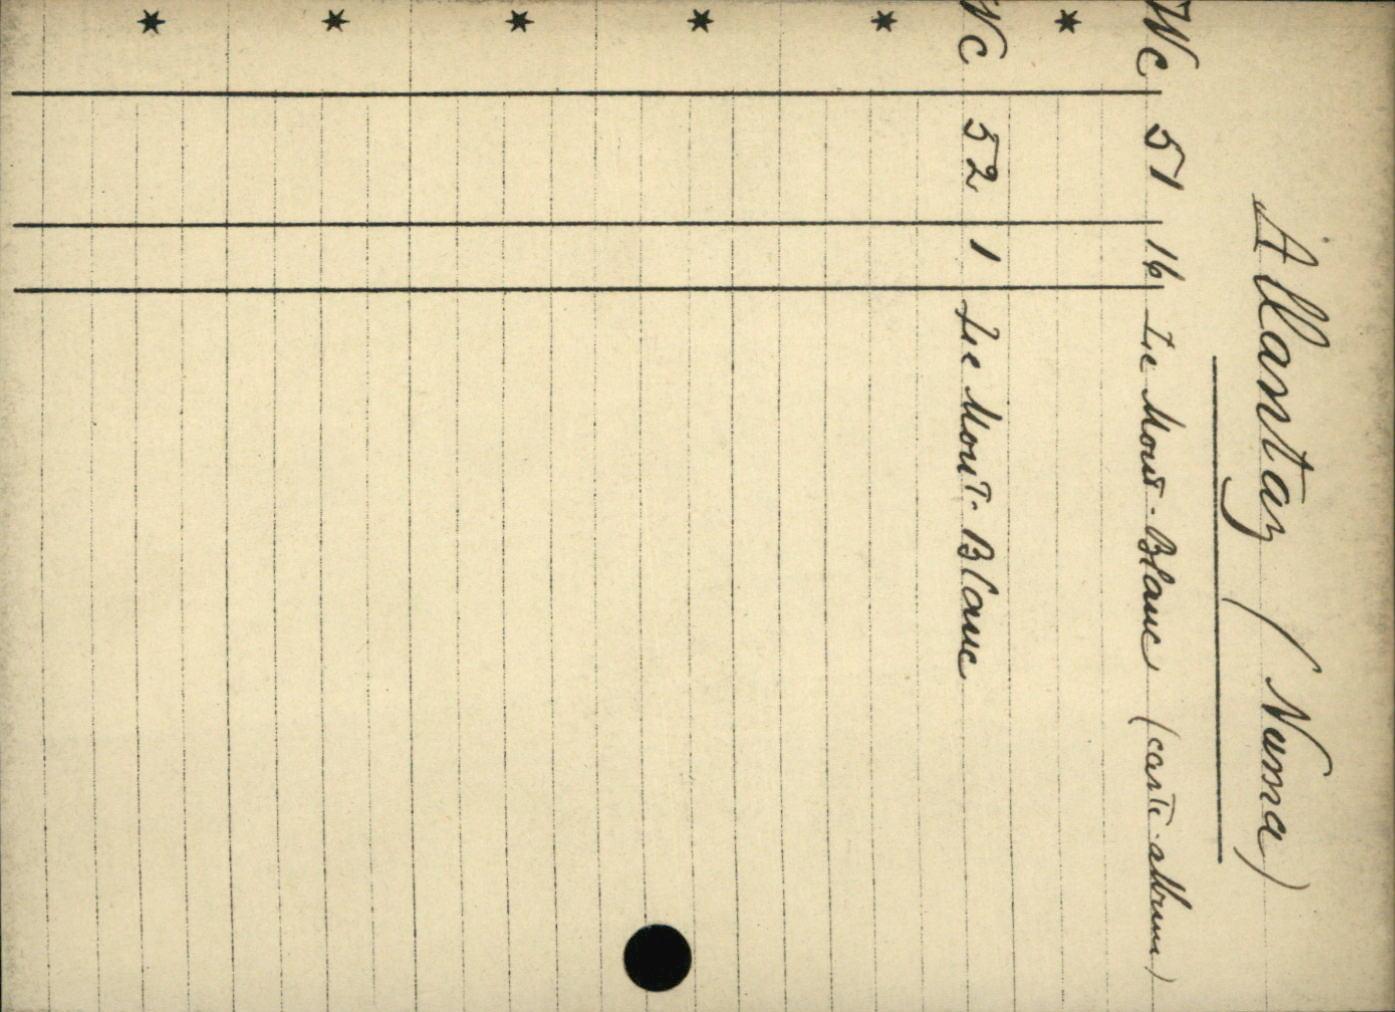 Allantaz (Numa)
Wc 51 16 Le Mont-Blanc (carte-album)
*
Wc 52 1 Le Mont-Blanc
*
*
*
*
*